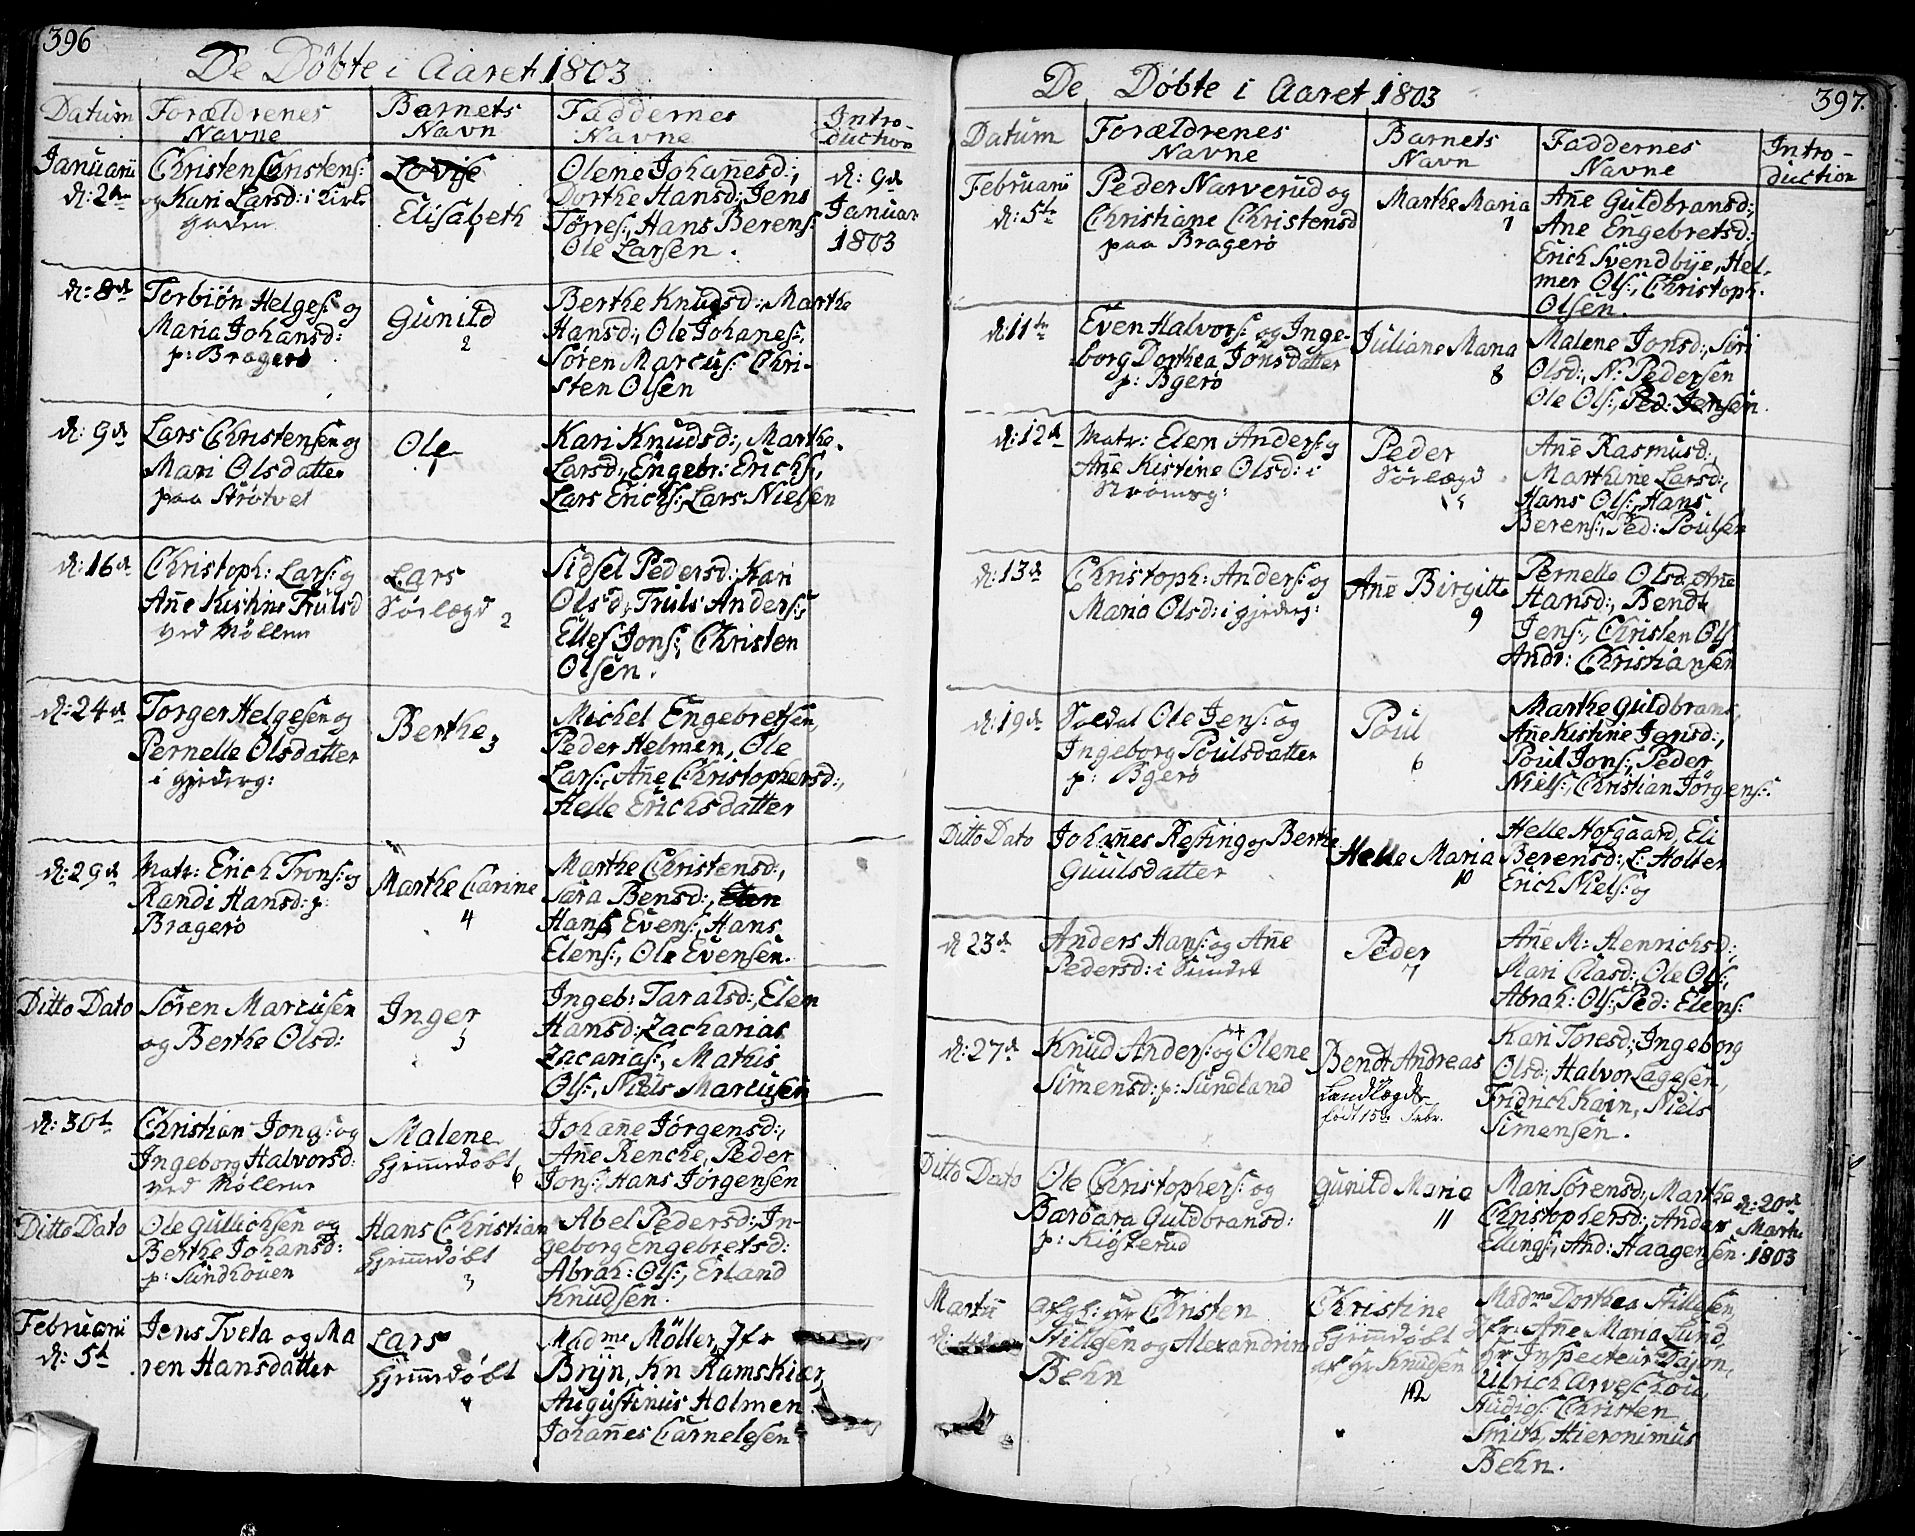 396
De Døbte i Aaret 1803
Datum
Forældrenes
Navne
Barnets
Navn
Faddernes
Navne
Intro-
duction
Januarii
d: 2den
Christen Christens:
og Kari Larsd: i Kirke
gaden
Lovise
Elisabeth
1
Olene Johan̄esd:,
Dorthe Hansd:, Jens
Tørres:, Hans Berens:
Ole Larsen.
d: 9de
Januar
1803
d: 8de
Torbiön Helges: og
Maria Johansd:
p: Bragerø
Gunild
2
Berthe Knudsd:, Marthe
Hansd:, Ole Johanes:,
Sören Marcus: Chri-
sten Olsen
d: 9de
Lars Christensen og
Mari Olsdatter
paa Strøtvet
Ole
1
Kari Knudsd:, Marthe
Larsd:, Engebr: Erichs:,
Lars Erichs:, Lars Nielsen
d: 16de
Christoph: Lars: og
An̄e Kistine Trulsd
ved Møllen
Lars
Sörlægd 2
Sidsel Pedersd:, Kari
Olsd:, Truls Anders:,
Ellef Jons:, Christen
Olsen.
d: 24de
Torger Helgesen og
Pernelle Olsdatter
i gjederg:
Berthe 3
Michel Engebretsen,
Peder Helmen, Ole
Lars:, An̄e Christophersd:,
Helle Erichsdatter
d: 29de
Matr: Erich Trons: og
Randi Hansd: p:
Bragerø
Marthe Carine
4
Marthe Christensd:,
Sara Bensd:,
Hans Evens:, Hans
Elens:, Ole Evensen.
Ditto Dato
Søren Marcusen
og Berthe Olsd:
Inger
5
Ingeb: Taralsd:, Elen
Hansd:, Zacharias
Zacarias:, Mathis
Ols:, Niels Marcusen
d: 30te
Christian Jons: og
Ingeborg Halvorsd:
ved Møllen
Malene
hjemmedøbt
6
Johan̄e Jørgensd:,
An̄e Renche, Peder
Jons:, Hans Jørgensen
Ditto Dato
Ole Gullichsen og
Berthe Johansd:
p: Sundhouen
Hans Christian
hjemmedøbt
3
Abel Pedersd:, In-
geborg Engebretsd:
Abrah: Ols:, Erland
Knudsen.
Februarii
d: 5te
Jens Tveta og Ma
ren Hansdatter
Lars
hjemmedøbt
4
Madme Möller, Jfr
Bryn, Kn Ramskiær,
Augustinus Holmen
Johan̄es Carnelesen
397.
De Døbte i Aaret 1803
Datum
Forældrenes
Navne
Barnets
Navn
Faddernes
Navne
Intro-
duction
Februarii
d: 5te
Peder Narverud og
Christiane Christensd
paa Bragerø
Marthe Maria
7
An̄e Guldbransd:,
Ane Engebretsd:,
Erich Svendbye, Hel-
mer Ols:, Christoph.
Olsen.
d: 11te
Even Halvors: og Inge-
borg Dorthea Jonsdatter
p: Bgerø
Juliane Maria
8
Malene Jonsd:, Siri
Olsd:, N: Pedersen
Ole Ols:, Ped: Jensen
d: 12te
Matr: Elen Anders: og
An̄e Kistine Olsd: i
Strömsg:
Peder
Sörlægd
5
An̄e Rasmusd:,
Marthine Larsd:,
Hans Ols:, Hans
Berens:, Ped: Poulsen
d: 13de
Christoph: Anders: og
Maria Olsd: i gjederg:
An̄e Birgitte
9
Pernelle Olsd:, An̄e
Hansd:, Bendt
Jens:, Christen Ols
Andr: Christiansen
d: 19de
Soldat Ole Jens: og
Ingeborg Poulsdatter
p: Bgerø
Poul
6
Marthe Guldbrans,
An̄e Kistine Jonsd:,
Poul Jons:, Peder
Niels:, Christian Jørgens:
Ditto Dato
Johan̄es Resting og Berthe
Guulsdatter
Helle Maria
10
Helle Hofgaard, Eli
Berensd:, L: Holter
Erich Niels: og
d 23de
Anders Hans: og An̄e
Pedersd: i Sundet
Peder
7
An̄e M: Henrichsd:,
Mari Clasd:, Ole Ols:,
Abrah: Ols:, Ped: Elens:
d: 27de
Knud Anders: og Olene
Simensd: p: Sundland
Bendt Andreas
Landlægdr
født 15de Febr.
Kari Toresd:, Ingeborg
Olsd:, Halvor Lagesen,
Fridrich Kain, Niels
Simensen.
Ditto Dato
Ole Christophers: og
Barbara Guldbransd:
p: Kigterud
Gunild Maria
11
Mari Sørensd:, Marthe
Christophersd:, Anders
Elings:, And: Haagensen
d: 20de
Marti
1803
Martii
Christen
Stillesen og Alexandrin
Behn
Christine
hjemmedøbt
af Hr Knudsen
12
Madme Dorthea Stillesen,
Jfr: An̄e Maria Lund,
Hr Inspecteur Dajon,
Ulrich Arveschou,
Studios: Christen
Smith, Hieronimus
Behn.